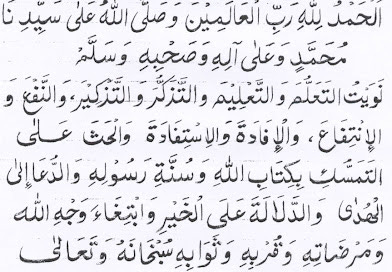 اَلْحَمْدُ لِلّٰهِ رَبِّ الْعَالَمِيْنَ وَصَلَّى اللهُ عَلَى سَيِّدِنَا
مُحَمَّدٍ وَعَلَى آلِهِ وَصَحْبِهِ وَسَلَّمْ
نَوَيْتُ التَّعَلُّمَ وَالتَّعْلِيْمَ وَالتَّذَكُّرَ وَالتَّذْكِيْرَ، وَالنَّفْعَ وَ
الإِنْتِفَاعَ، وَالْإِفَادَةَ وَالِاسْتِفَادَةَ وَالْحَثَّ عَلَى
التَّمَسُّكِ بِكِتَابِ اللهِ وَسُنَّةِ رَسُوْلِهِ وَالدُّعَاءِ إِلَى
الْهُدَى وَالدَّلَالَةَ عَلَى الْخَيْرِ وَابْتِغَاءَ وَجْهِ اللهِ
وَمَرْضَاتِهِ وَقُرْبِهِ وَثَوَابِهِ سُبْحَانَهُ وَتَعَالَى